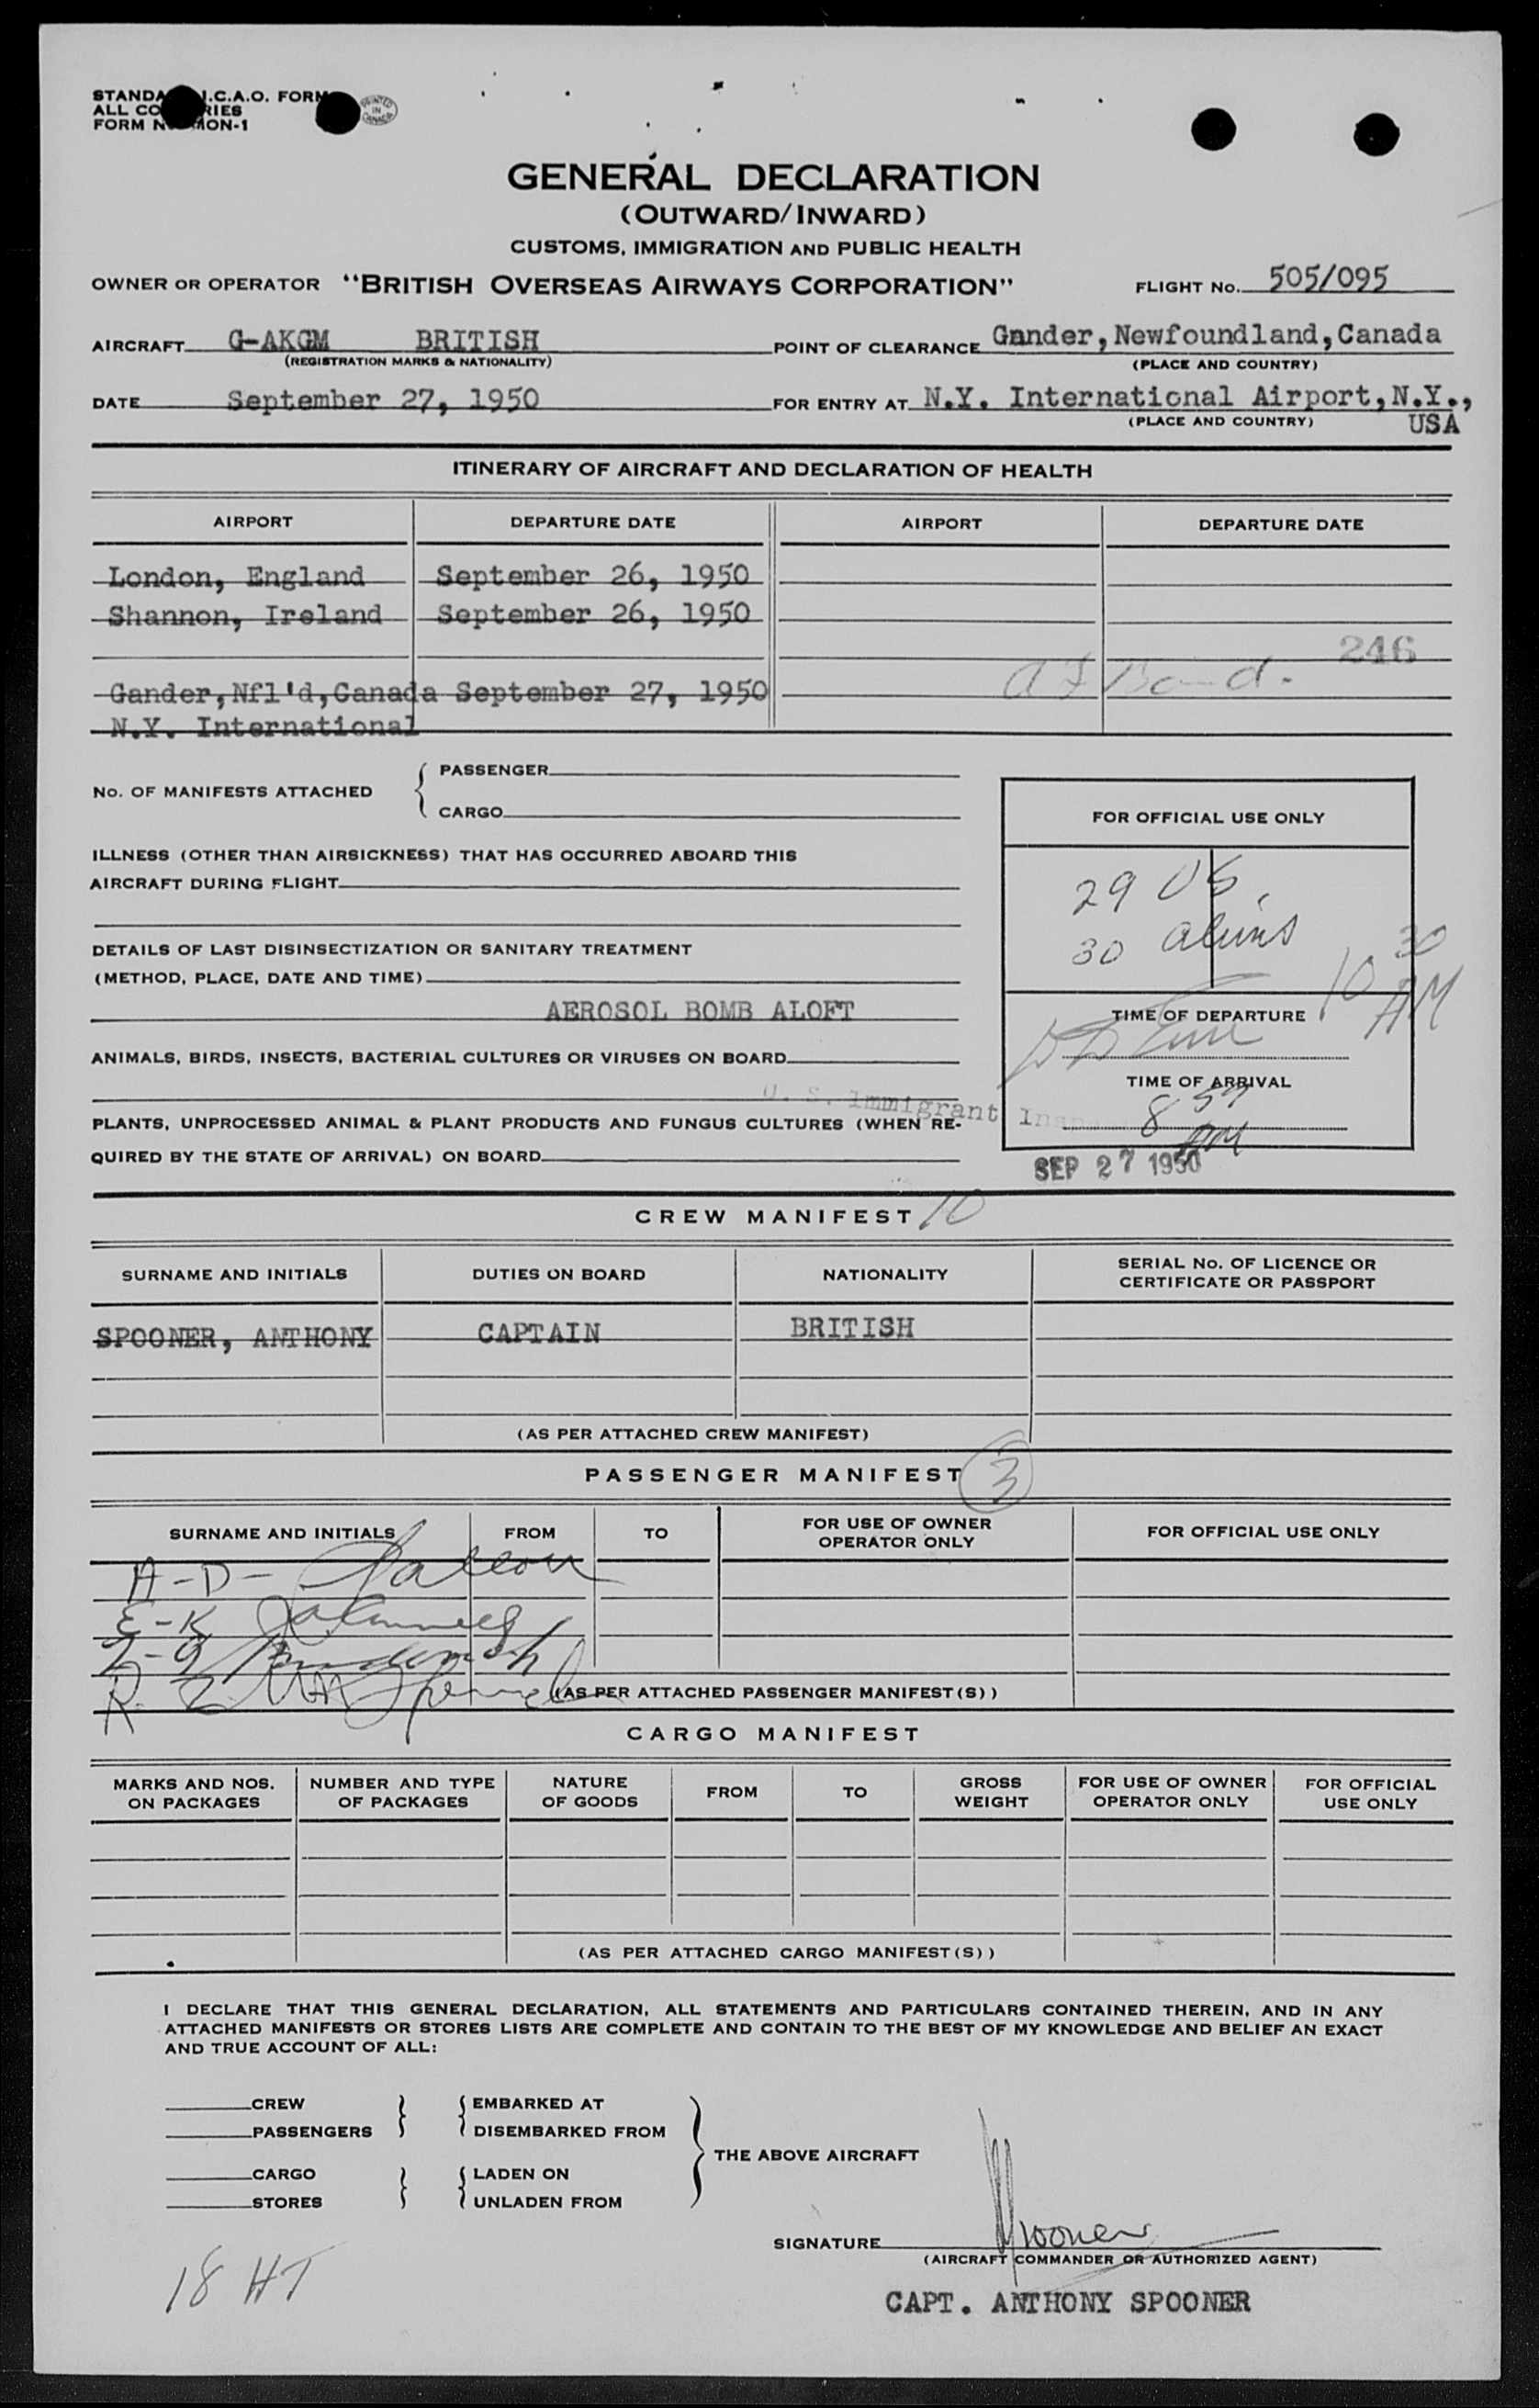 STANDA I.C.A.O. FORM
ALL CO RIES
FORM N MON-1
PRINTED IN CANADA
GENERAL DECLARATION
(OUTWARD/INWARD)
CUSTOMS, IMMIGRATION AND PUBLIC HEALTH
OWNER OR OPERATOR "BRITISH OVERSEAS AIRWAYS CORPORATION" FLIGHT No. 505/095
AIRCRAFT G-AKGM BRITISH POINT OF CLEARANCE Gander, Newfoundland, Canada
(REGISTRATION MARKS & NATIONALITY) (PLACE AND COUNTRY)
DATE September 27, 1950 FOR ENTRY AT N.Y. International Airport, N.Y.,
(PLACE AND COUNTRY) USA
ITINERARY OF AIRCRAFT AND DECLARATION OF HEALTH
AIRPORT DEPARTURE DATE AIRPORT DEPARTURE DATE
London, England September 26, 1950
Shannon, Ireland September 26, 1950
246
Gander, Nfl'd, Canada September 27, 1950
N.Y. International
No. OF MANIFESTS ATTACHED { PASSENGER
CARGO
FOR OFFICIAL USE ONLY
ILLNESS (OTHER THAN AIRSICKNESS) THAT HAS OCCURRED ABOARD THIS
AIRCRAFT DURING FLIGHT
29 US
30 aliens
DETAILS OF LAST DISINSECTIZATION OR SANITARY TREATMENT
(METHOD, PLACE, DATE AND TIME)
10 30 AM
AEROSOL BOMB ALOFT
TIME OF DEPARTURE
ANIMALS, BIRDS, INSECTS, BACTERIAL CULTURES OR VIRUSES ON BOARD
TIME OF ARRIVAL
U. S. Immigrant
8 59 AM
PLANTS, UNPROCESSED ANIMAL & PLANT PRODUCTS AND FUNGUS CULTURES (WHEN RE-
QUIRED BY THE STATE OF ARRIVAL) ON BOARD
SEP 27 1950
CREW MANIFEST 10
SURNAME AND INITIALS DUTIES ON BOARD NATIONALITY SERIAL No. OF LICENCE OR
CERTIFICATE OR PASSPORT
SPOONER, ANTHONY CAPTAIN BRITISH
(AS PER ATTACHED CREW MANIFEST)
PASSENGER MANIFEST 3
SURNAME AND INITIALS FROM TO FOR USE OF OWNER
OPERATOR ONLY FOR OFFICIAL USE ONLY
A-D-
E-K
(AS PER ATTACHED PASSENGER MANIFEST(S))
CARGO MANIFEST
MARKS AND NOS.
ON PACKAGES NUMBER AND TYPE
OF PACKAGES NATURE
OF GOODS FROM TO GROSS
WEIGHT FOR USE OF OWNER
OPERATOR ONLY FOR OFFICIAL
USE ONLY
(AS PER ATTACHED CARGO MANIFEST(S))
I DECLARE THAT THIS GENERAL DECLARATION, ALL STATEMENTS AND PARTICULARS CONTAINED THEREIN, AND IN ANY
ATTACHED MANIFESTS OR STORES LISTS ARE COMPLETE AND CONTAIN TO THE BEST OF MY KNOWLEDGE AND BELIEF AN EXACT
AND TRUE ACCOUNT OF ALL:
CREW EMBARKED AT
PASSENGERS DISEMBARKED FROM
THE ABOVE AIRCRAFT
CARGO LADEN ON
STORES UNLADEN FROM
SIGNATURE Spooner
(AIRCRAFT COMMANDER OR AUTHORIZED AGENT)
18 HT
CAPT. ANTHONY SPOONER